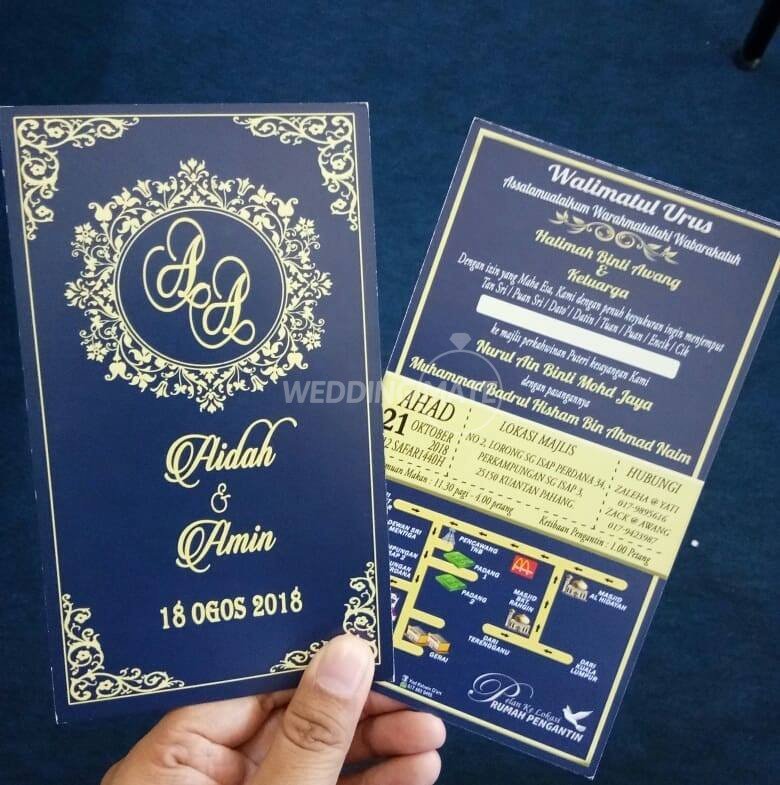 AA
Aidah
&
Amin
18 OGOS 2018
WEDDING MATE
Walimatul Urus
Assalamualaikum Warahmatullahi Wabarakatuh
Halimah Binti Awang
&
Keluarga
Dengan izin yang Maha Esa, Kami dengan penuh kesyukuran ingin menjemput
Tan Sri / Puan Sri / Dato' / Datin / Tuan / Puan / Encik / Cik
ke majlis perkahwinan Puteri kesayangan Kami
Nurul Ain Binti Mohd Jaya
dengan pasangannya
Muhammad Badrul Hisham Bin Ahmad Naim
AHAD
21 OKTOBER
2018
12 SAFAR 1440H
LOKASI MAJLIS
NO 2, LORONG SG ISAP PERDANA 34,
PERKAMPUNGAN SG ISAP 3,
25150 KUANTAN PAHANG.
HUBUNGI
ZALEHA @ YATI
017-9895616
ZACK @ AWANG
017-9423987
muan Makan : 11.30 pagi - 4.00 petang
Ketibaan Pengantin : 1.00 Petang
DEWAN SRI
MENTIGA
PENCAWANG
TNB
PADANG
1
PADANG
2
MASJID
BKT.
RANGIN
MASJID
AL HIDAYAH
GERAI
DARI
TERENGGANU
DARI
KUALA
LUMPUR
Pelan Ke Lokasi
RUMAH PENGANTIN